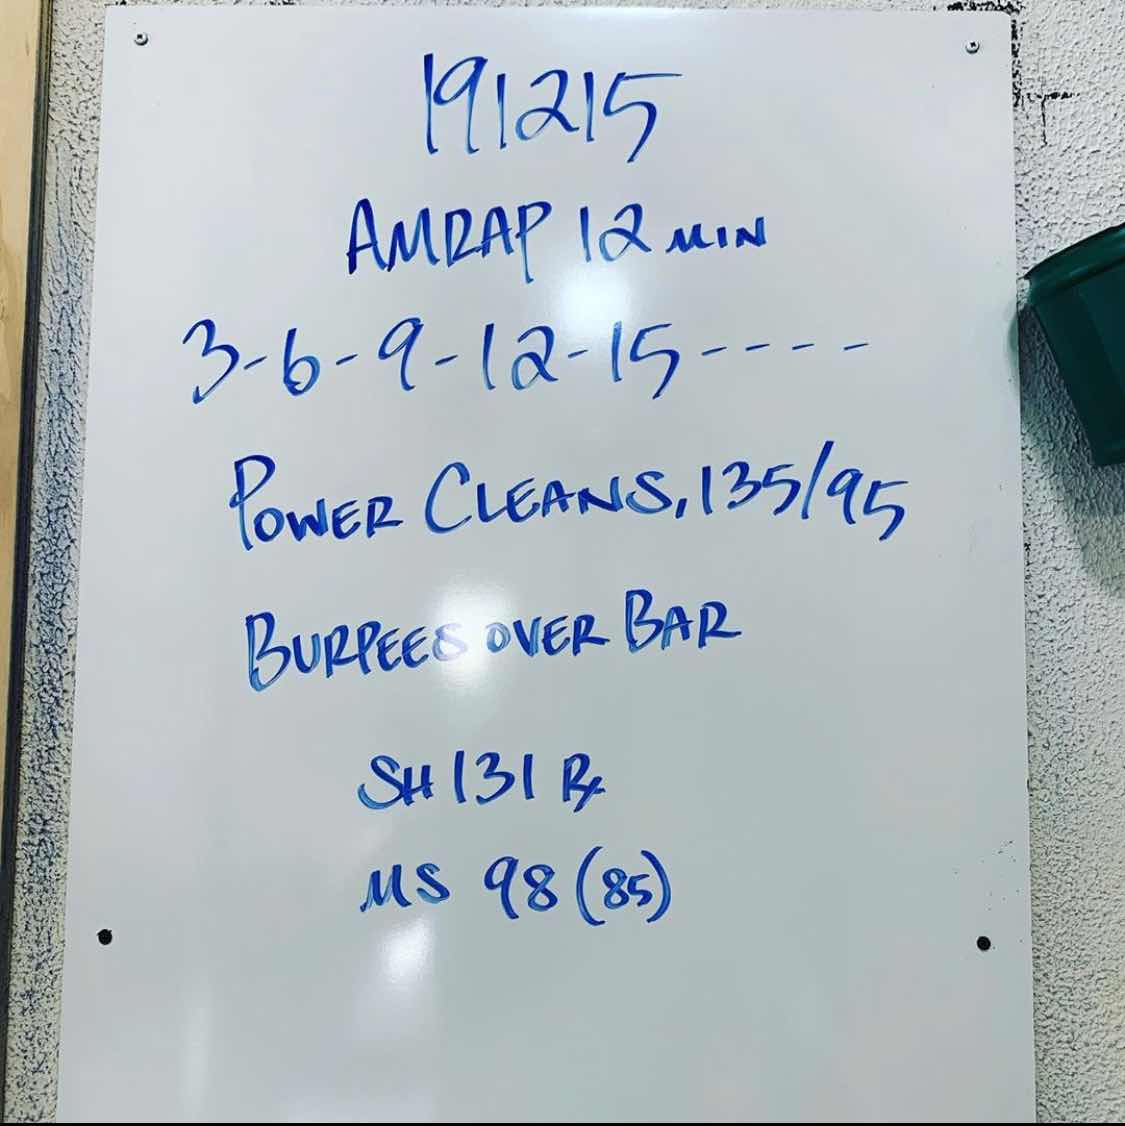 191215
AMRAP 12 MIN
3-6-9-12-15----
POWER CLEANS, 135/95
BURPEES OVER BAR
SH 131 Rx
MS 98 (85)